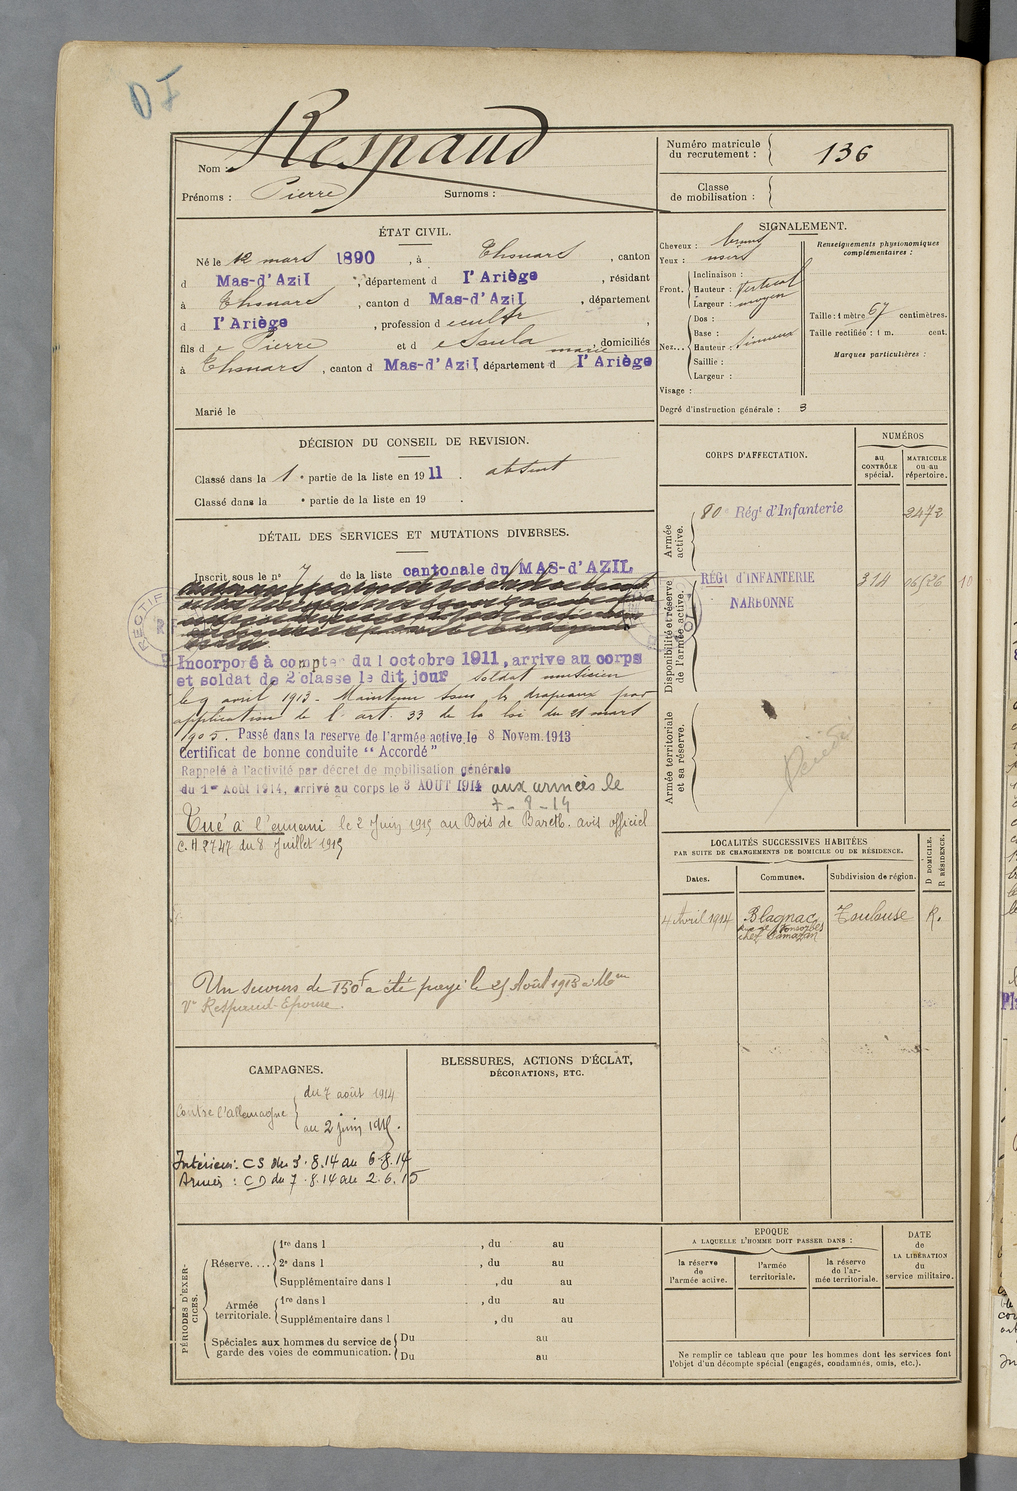 DF
Nom : Respaud
Prénoms : Pierre Surnoms :
Numéro matricule du recrutement : 136
Classe de mobilisation :
ÉTAT CIVIL.
Né le 12 mars 1890, à Thouars, canton
d Mas-d'Azil, département d l'Ariège, résidant
à Thouars, canton d Mas-d'Azil, département
d l'Ariège, profession d cultr,
fils d e Pierre et d e Soula marie, domiciliés
à Thouars, canton d Mas-d'Azil, département d l'Ariège
Marié le
SIGNALEMENT.
Cheveux : bruns
Yeux : noirs
Front. Inclinaison :
Hauteur : vertical
Largeur : moyen
Nez... Dos :
Base :
Hauteur : sinueux
Saillie :
Largeur :
Visage :
Renseignements physionomiques complémentaires :
Taille : 1 mètre 67 centimètres.
Taille rectifiée : 1 m. cent.
Marques particulières :
Degré d'instruction générale : 3
DÉCISION DU CONSEIL DE REVISION.
Classé dans la 1e partie de la liste en 1911. absent
Classé dans la e partie de la liste en 19 .
DÉTAIL DES SERVICES ET MUTATIONS DIVERSES.
Inscrit sous le n° 7 de la liste cantonale du MAS-d'AZIL
Incorporé à compter du 1 octobre 1911, arrive au corps
et soldat de 2 classe le dit jour, soldat musicien
le 9 avril 1913. Maintenu sous les drapeaux par
application de l'art. 33 de la loi du 21 mars
1905. Passé dans la reserve de l'armée active, le 8 Novem. 1913
Certificat de bonne conduite "Accordé"
Rappelé à l'activité par décret de mobilisation générale
du 1er Août 1914, arrivé au corps le 3 AOUT 1914 aux armées le
7-8-14
Tué à l'ennemi le 2 Juin 1915 au Bois de avis officiel
C.A 2747 du 8 Juillet 1915
Un secours de 150F a été payé le 25 Août 1915 à Mme
Ve Respaud-Epouse.
CORPS D'AFFECTATION.
NUMÉROS
au CONTRÔLE spécial.
MATRICULE ou au répertoire.
Armée active.
80e Régt d'Infanterie 2472
Disponibilité et réserve de l'armée active.
RÉGt d'INFANTERIE 314
NARBONNE
Armée territoriale et sa réserve.
LOCALITÉS SUCCESSIVES HABITÉES
PAR SUITE DE CHANGEMENTS DE DOMICILE OU DE RÉSIDENCE.
Dates. Communes. Subdivision de région. D DOMICILE. R RÉSIDENCE.
4 Avril 1914 Blagnac Toulouse R.
CAMPAGNES.
Contre l'allemagne du 7 août 1914
au 2 juin 1915.
Intérieur : CS du 3.8.14 au 6.8.14
Armées : CD du 7.8.14 au 2.6.15
BLESSURES, ACTIONS D'ÉCLAT,
DÉCORATIONS, ETC.
PÉRIODES D'EXERCICES.
Réserve.... 1re dans l , du au
2e dans l , du au
Supplémentaire dans l , du au
Armée territoriale. 1re dans l , du au
Supplémentaire dans l , du au
Spéciales aux hommes du service de garde des voies de communication. Du au
Du au
EPOQUE
A LAQUELLE L'HOMME DOIT PASSER DANS :
la réserve de l'armée active.
l'armée territoriale.
la réserve de l'armée territoriale.
DATE de LA LIBÉRATION du service militaire.
Ne remplir ce tableau que pour les hommes dont les services font
l'objet d'un décompte spécial (engagés, condamnés, omis, etc.).